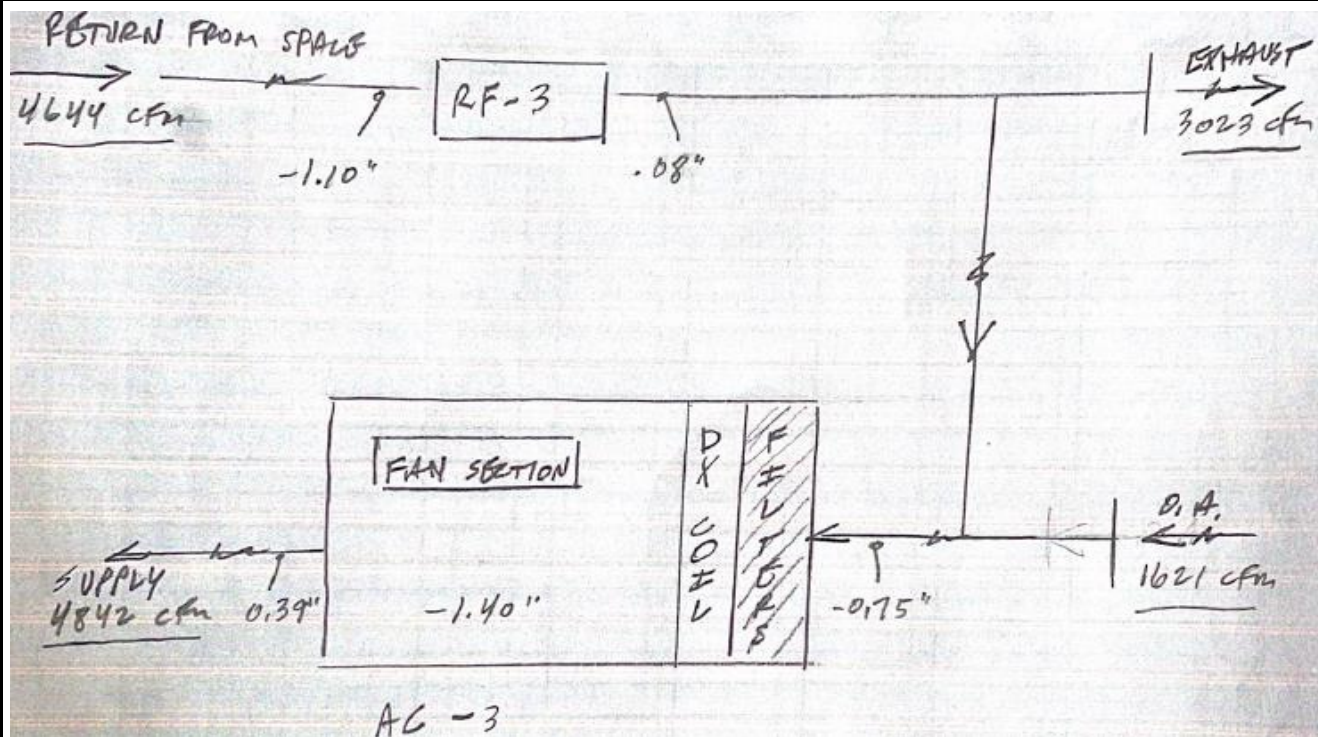 RETURN FROM SPACE
4644 cfm
-1.10"
RF-3
.08"
EXHAUST
3023 cfm
FAN SECTION
-1.40"
DX COIL
FILTERS
SUPPLY
4842 cfm
0.39"
-0.75"
O.A.
1621 cfm
AC-3